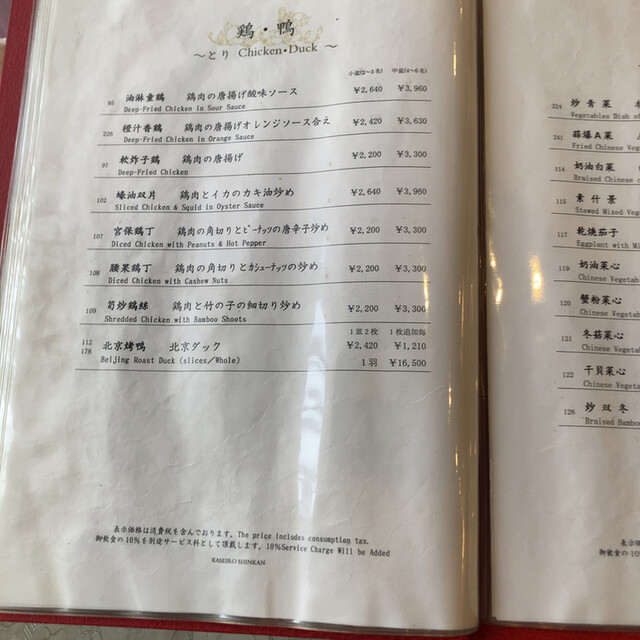 鶏・鴨
～とり Chicken・Duck ～
小盆(2～3名) 中盆(4～6名)
95 油淋童鶏 鶏肉の唐揚げ酸味ソース ¥2,640 ¥3,960
Deep-Fried Chicken in Sour Sauce
226 橙汁香鶏 鶏肉の唐揚げオレンジソース合え ¥2,420 ¥3,630
Deep-Fried Chicken in Orange Sauce
97 軟炸子鶏 鶏肉の唐揚げ ¥2,200 ¥3,300
Deep-Fried Chicken
102 蠔油双片 鶏肉とイカのカキ油炒め ¥2,640 ¥3,960
Sliced Chicken & Squid in Oyster Sauce
107 宮保鶏丁 鶏肉の角切りとピーナッツの唐辛子炒め ¥2,200 ¥3,300
Diced Chicken with Peanuts & Hot Pepper
108 腰果鶏丁 鶏肉の角切りとカシューナッツの炒め ¥2,200 ¥3,300
Diced Chicken with Cashew Nuts
109 筍炒鶏絲 鶏肉と竹の子の細切り炒め ¥2,200 ¥3,300
Shredded Chicken with Bamboo Shoots
1皿2枚 1枚追加毎
112 北京烤鴨 北京ダック ¥2,420 ¥1,210
178 Beijing Roast Duck (slices/Whole) 1羽 ¥16,500
表示価格は消費税を含んでおります。The price includes consumption tax.
御飲食の10%を別途サービス料として頂戴します。10%Service Charge Will be Added
KASEIRO SHINKAN
224 炒青菜
Vegetables Dish of
241 蒜爆A菜
Fried Chinese Veg
114 奶油白菜
Braised Chinese c
115 素什景
Stewed Mixed Veg
117 乾焼茄子
Eggplant with Mi
119 奶油菜心
Chinese Vegetab
120 蟹粉菜心
Chinese Vegetab
121 冬菇菜心
Chinese Vegeta
122 干貝菜心
Chinese Vegeta
126 炒双冬
Braised Bamboo
表示価
御飲食の10%